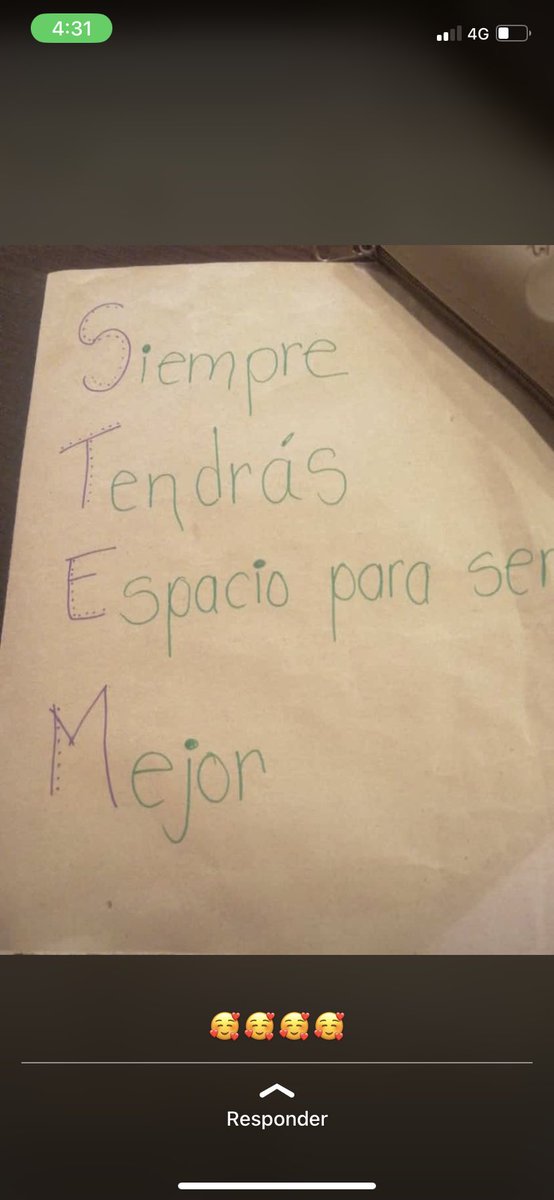 4:31
4G
Siempre
Tendrás
Espacio para ser
Mejor
🥰🥰🥰🥰
Responder